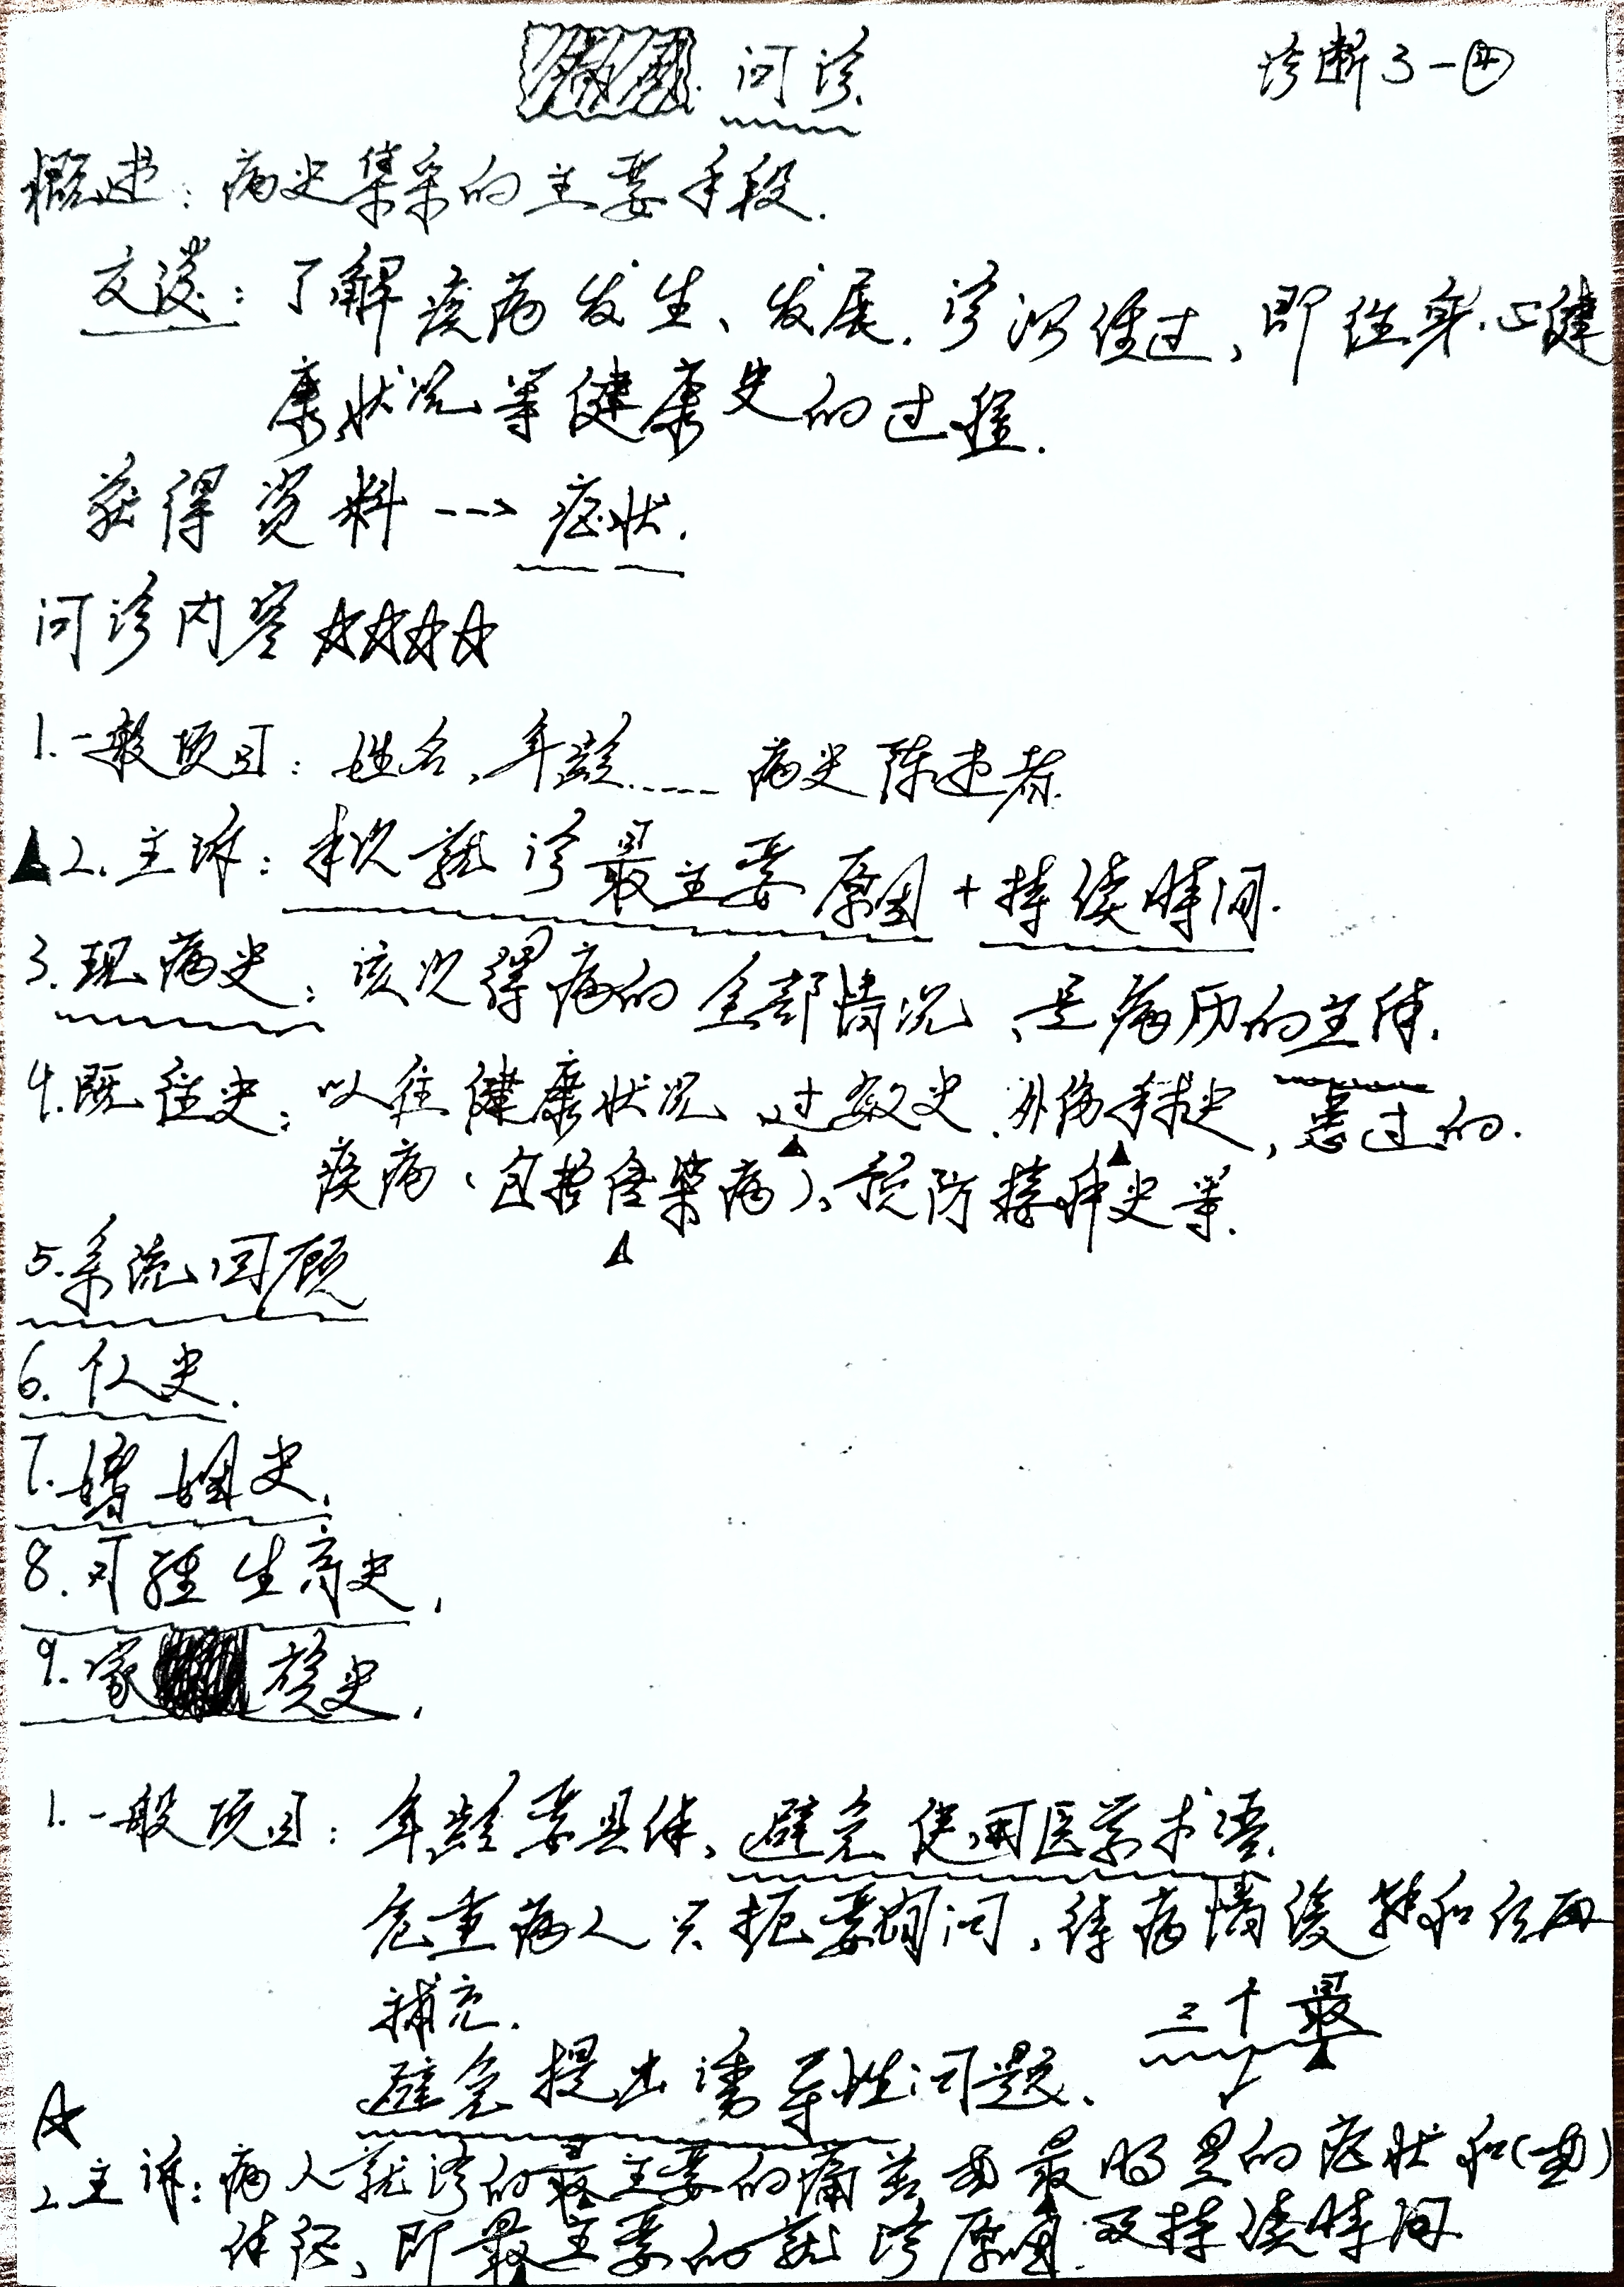 问诊
诊断3-④
概述：病史集采的主要手段.
交谈：了解疾病发生、发展.诊治经过、即往身心健
康状况等健康史的过程.
获得资料--->症状.
问诊内容☆☆☆☆
1.一般项目：姓名、年龄……病史陈述者.
▲2.主诉：本次就诊最主要原因+持续时间.
3.现病史：该次得病的全部情况、是病历的主体.
4.既往史：以往健康状况、过敏史.外伤手术史,患过的.
疾病（包括传染病）、预防接种史等.
5.系统回顾
6.个人史.
7.婚姻史.
8.月经生育史.
9.家族史.
1.一般项目：年龄要具体、避免使用医学术语.
危重病人只扼要询问、待病情缓和后再
补充.
三个最
避免提出诱导性问题.
☆
2.主诉：病人就诊的最主要的痛苦或最明显的症状和(或)
体征、即最主要的就诊原因.及持续时间